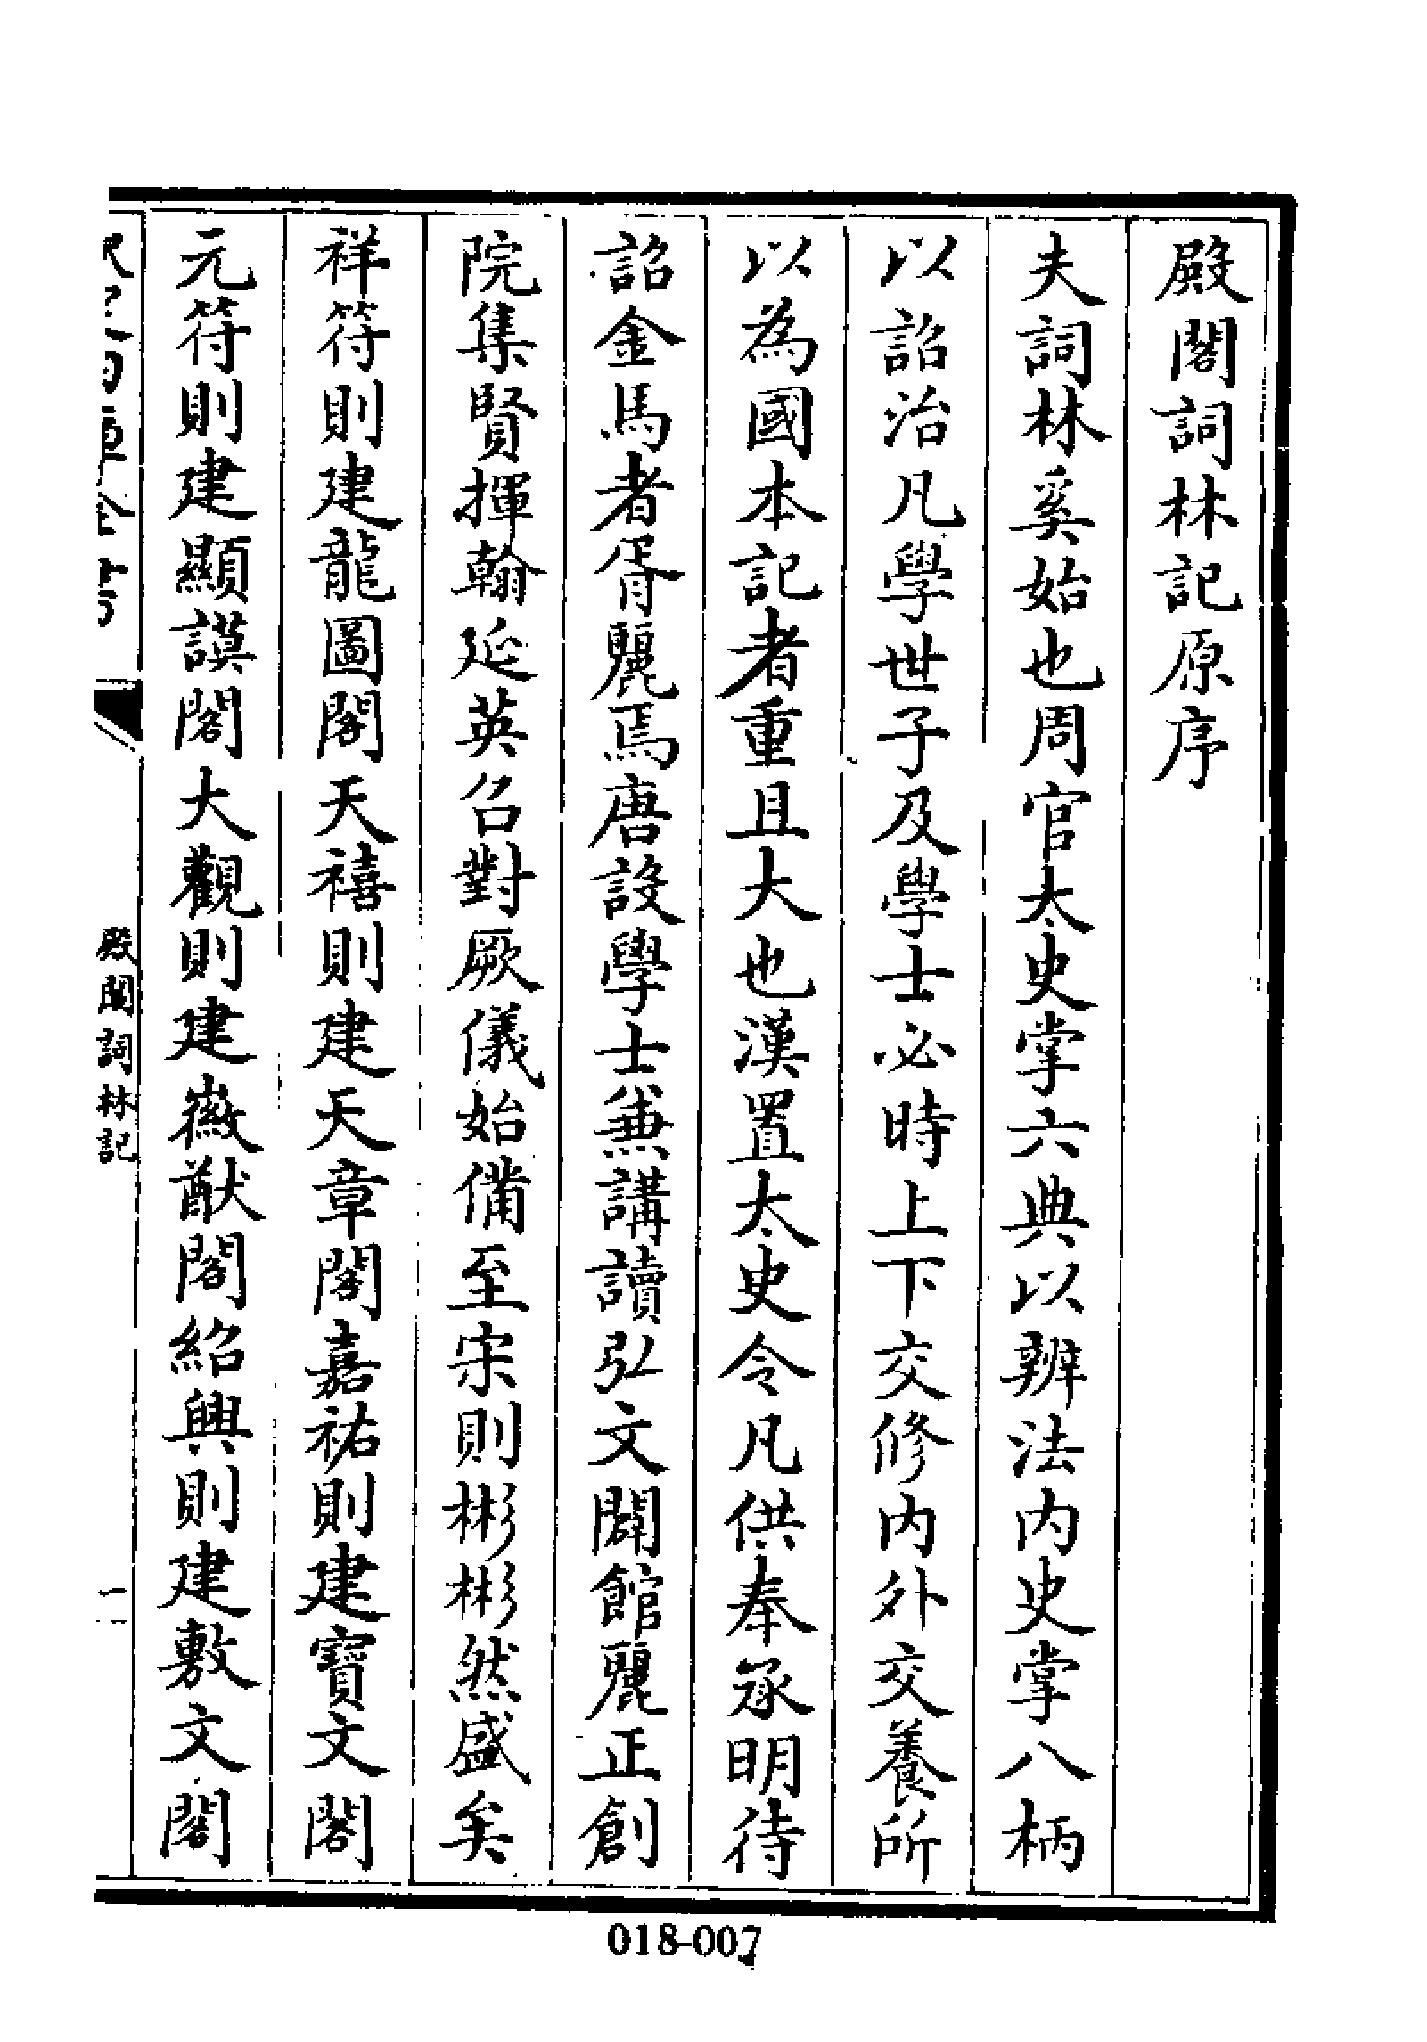 殿閣詞林記原序
夫詞林奚始也周官太史掌六典以辨法内史掌八柄
以詔治凡學世子及學士必時上下交修内外交養所
以為國本記者重且大也漢置太史令凡供奉承明待
詔金馬者胥麗焉唐設學士兼講讀弘文闢館麗正創
院集賢揮翰延英召對厥儀始備至宋則彬彬然盛矣
祥符則建龍圖閣天禧則建天章閣嘉祐則建寳文閣
元符則建顯謨閣大觀則建徽猷閣紹興則建敷文閣
欽定四庫全書
殿閣詞林記
一
018-007